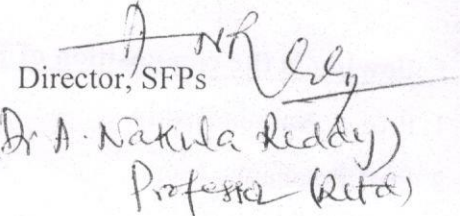 Director, SFPs
Dr A. Nakula Reddy)
Professor (Retd)